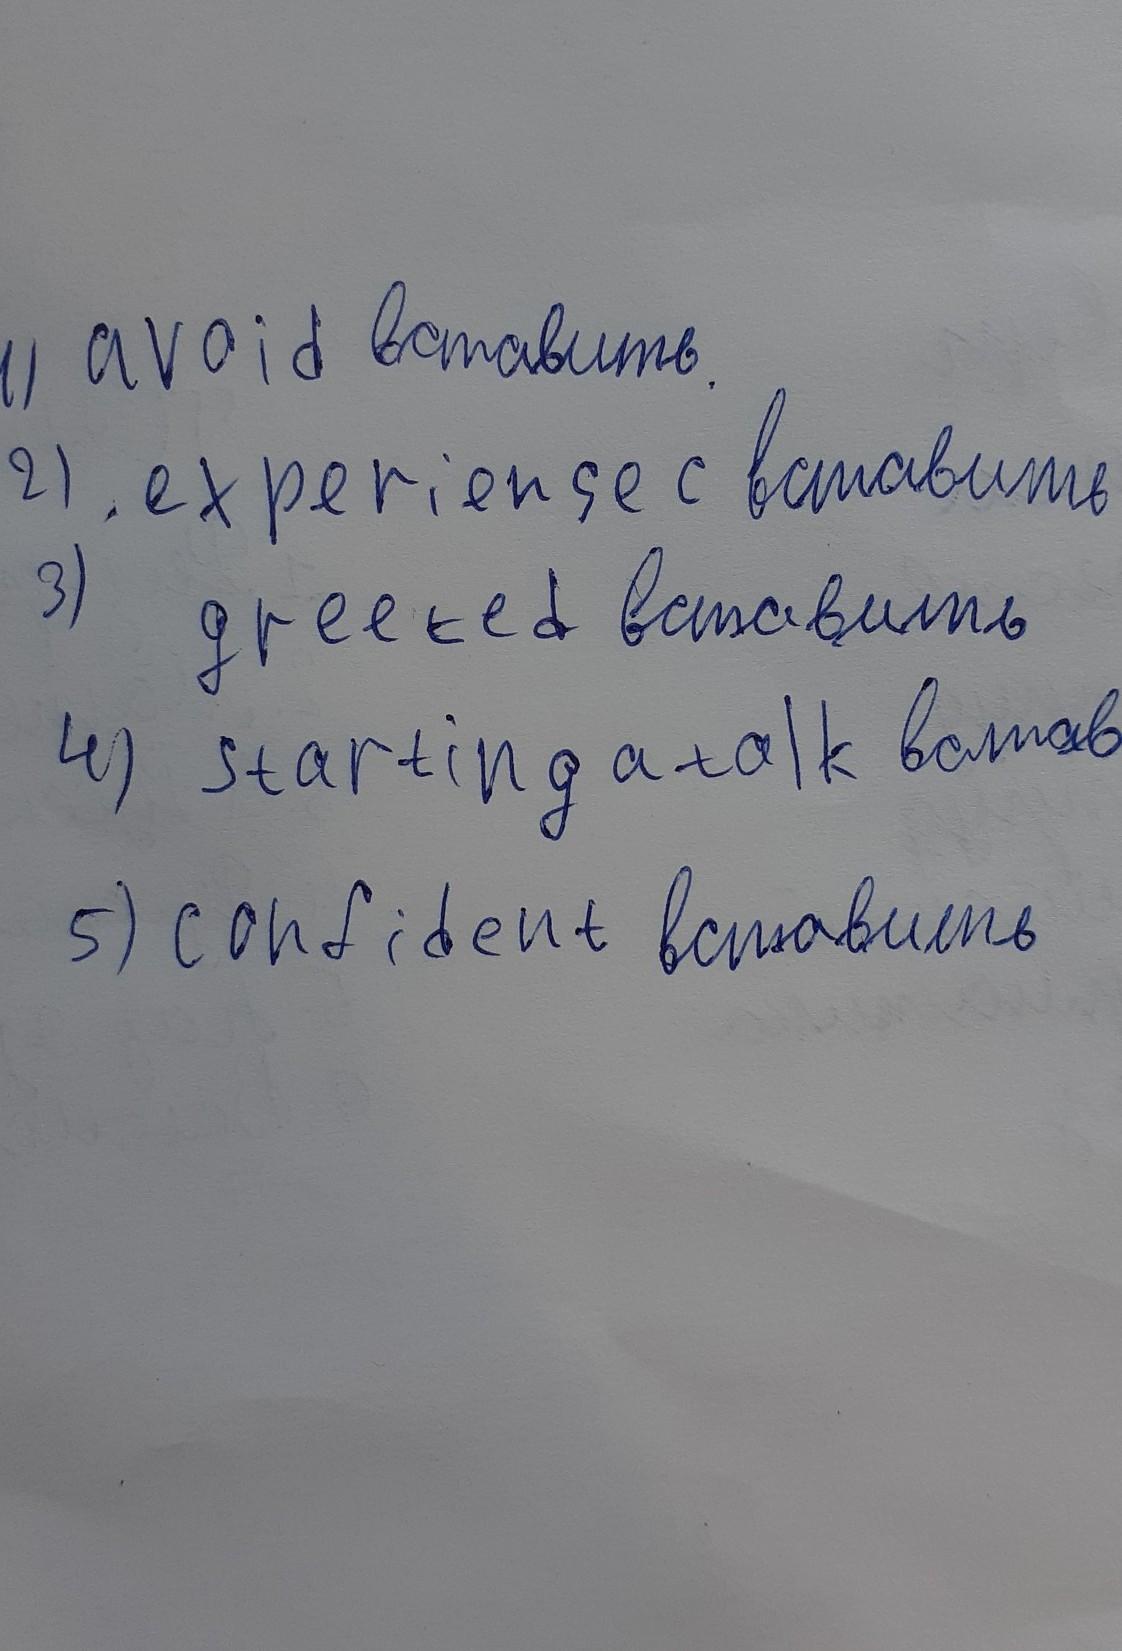 1) avoid вставить.
2) . experiense c вставить
3) greeted вставить
4) starting a talk встав
5) confident вставить